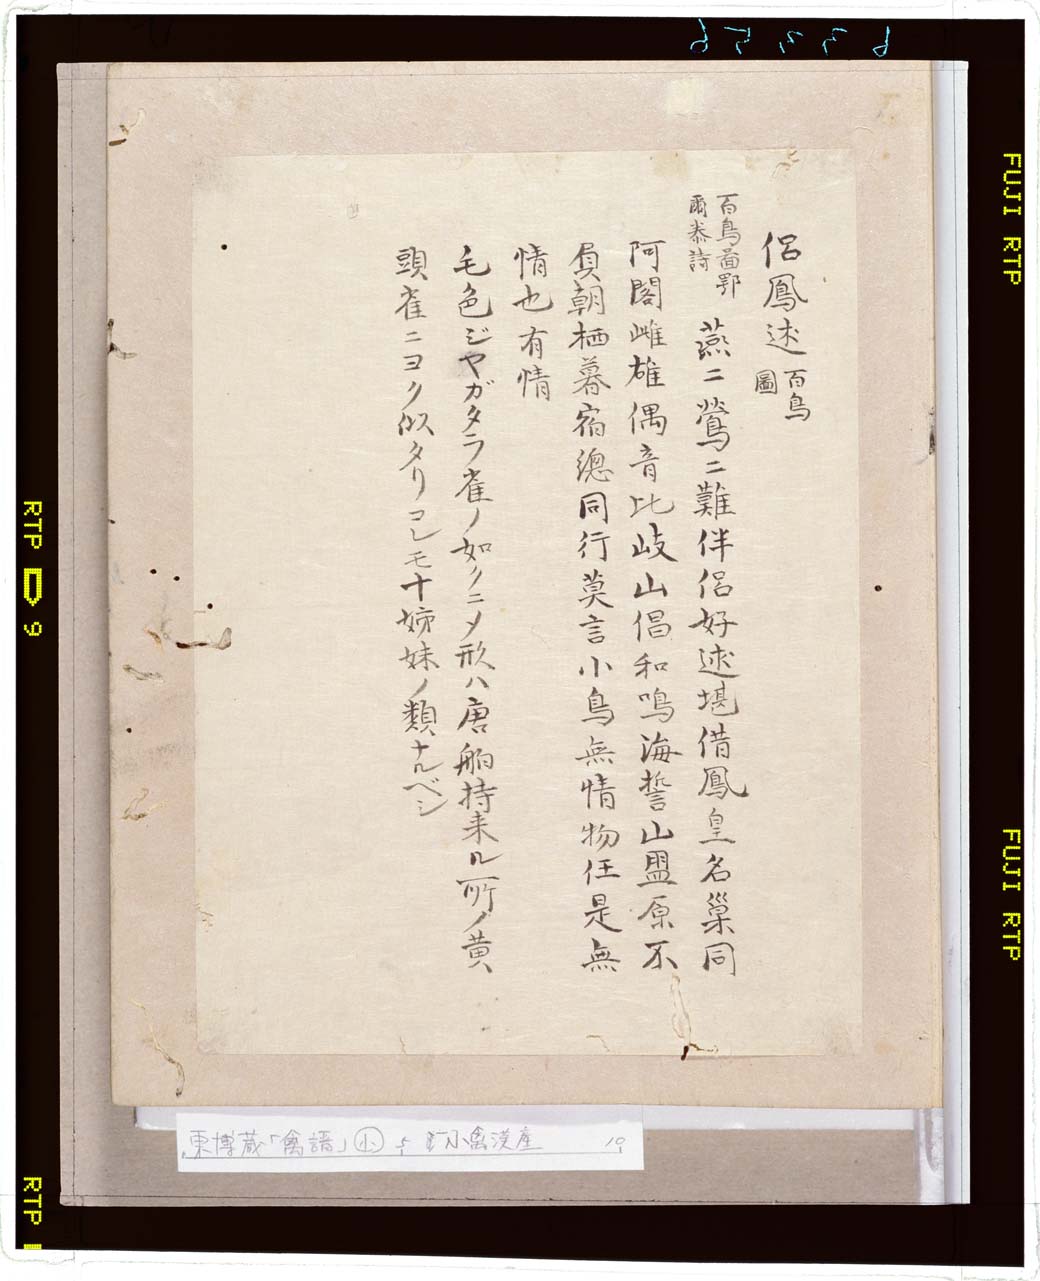 侶鳳逑 百鳥
圖
百鳥啚鄂
爾泰詩
燕ニ鶯ニ難伴侶好逑堪借鳳皇名巢同
阿閣雌雄偶音比岐山倡和鳴海誓山盟原不
負朝栖暮宿總同行莫言小鳥無情物任是無
情也有情
毛色ジヤガタラ雀ノ如クニメ形ハ唐舶持来ル所ノ黄
頭雀ニヨク似タリコレモ十姉妹ノ類ナルベシ
東博蔵「禽譜」小 小禽漢産 10
63356
FUJI RTP
FUJI RTP
RTP 9
RTP